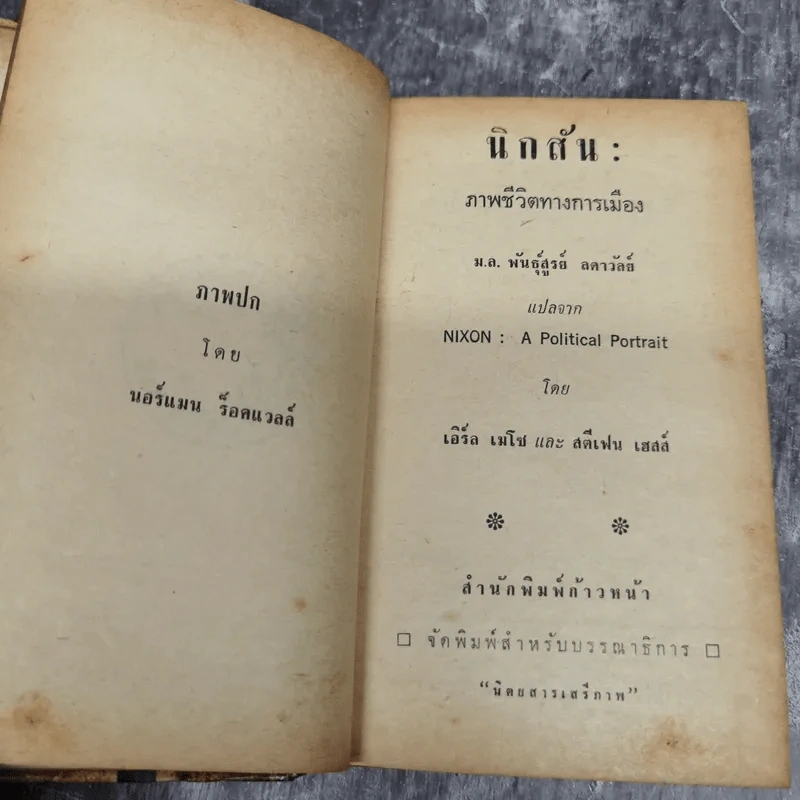 ภาพปก
โดย
นอร์แมน ร็อคแวลล์
นิกสัน :
ภาพชีวิตทางการเมือง
ม.ล. พันธุ์สูรย์ ลดาวัลย์
แปลจาก
NIXON : A Political Portrait
โดย
เอิร์ล เมโซ และ สตีเฟน เฮสส์
สำนักพิมพ์ก้าวหน้า
จัดพิมพ์สำหรับบรรณาธิการ
“นิตยสารเสรีภาพ”